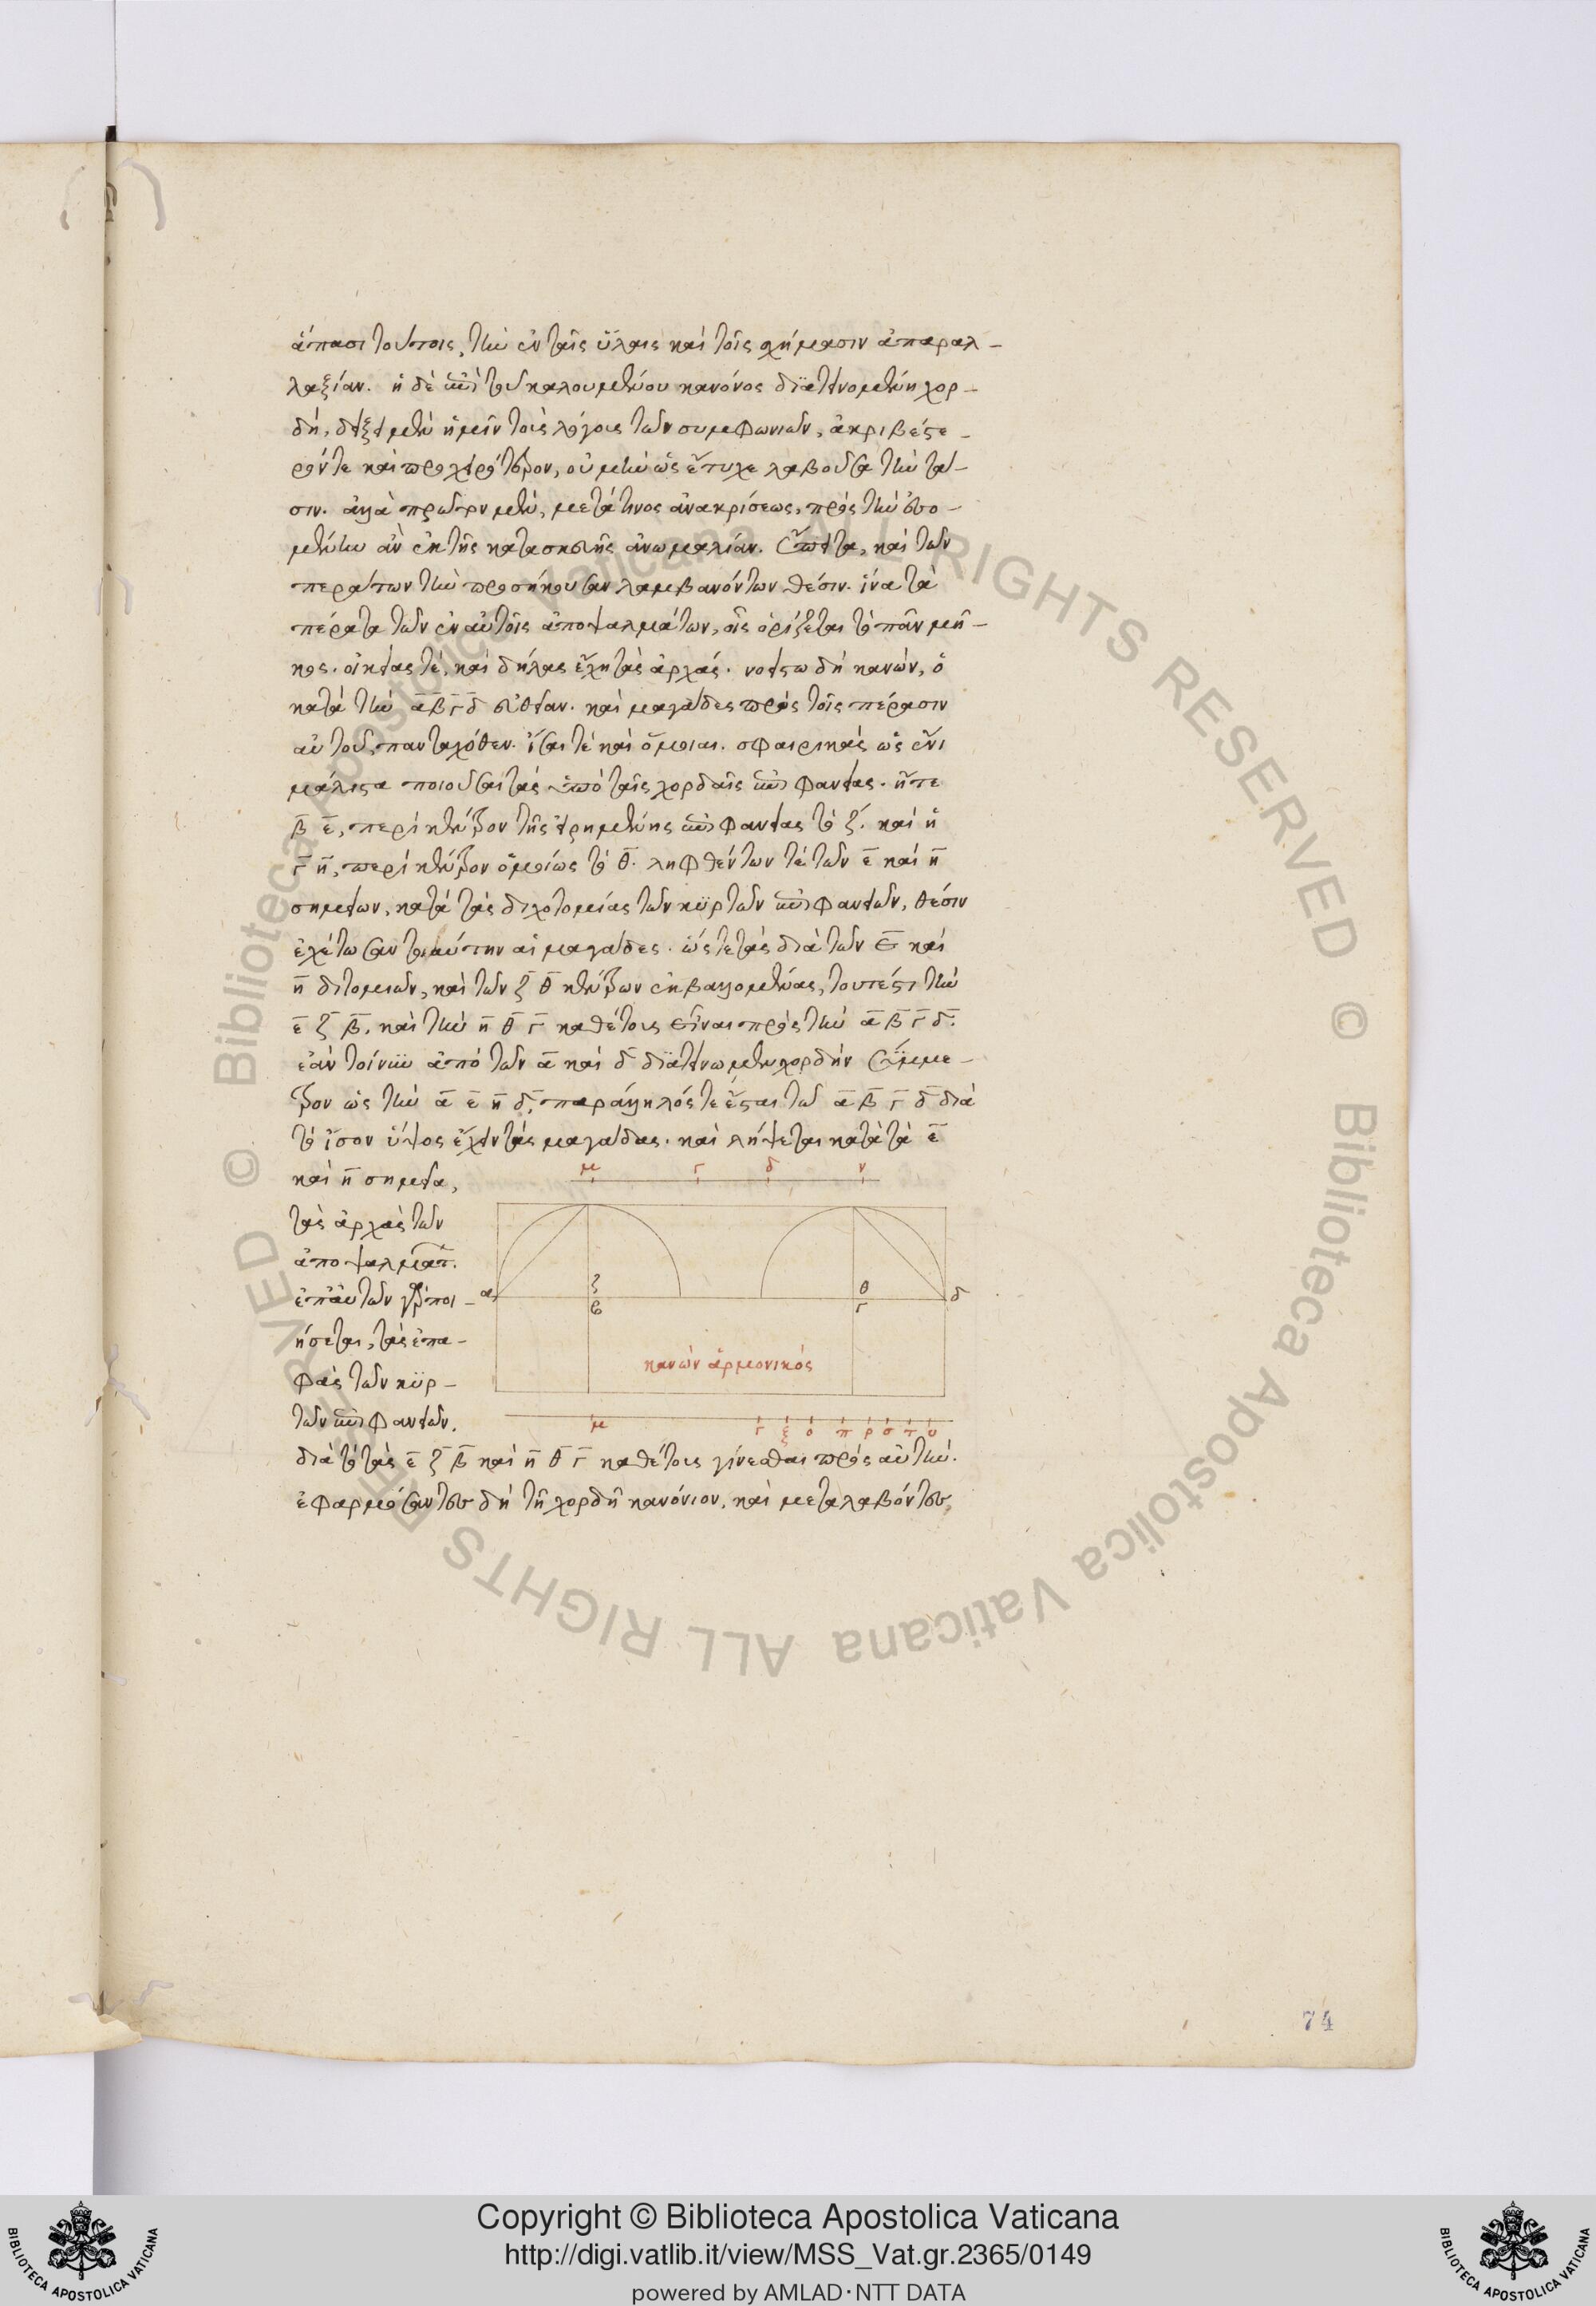 ἅπασι τούτοις, τὴν ἐν ταῖς ὕλαις καὶ τοῖς σχήμασιν ἀπαραλ-
λαξίαν. ἡ δὲ ἐπὶ τοῦ καλουμένου κανόνος διατεινομένη χορ-
δή, δείξει μὲν ἡμῖν τοὺς λόγους τῶν συμφωνιῶν, ἀκριβέστε-
ρόν τε καὶ προχειρότερον, οὐ μὴν ὡς ἔτυχε λαβοῦσα τὴν τά-
σιν. ἀλλὰ πρῶτον μὲν, μετά τινος ἀνακρίσεως, πρὸς τὴν ἐσο-
μένην ἂν ἐκ τῆς κατασκευῆς ἀνωμαλίαν. ἔπειτα, καὶ τῶν
περάτων τὴν προσήκουσαν λαμβανόντων θέσιν. ἵνα τὰ
πέρατα τῶν ἐν αὐτοῖς ἀποψαλμάτων, οἷς ὁρίζεται τὸ πᾶν μῆ-
κος. οἰκείας τὲ, καὶ δήλας ἔχῃ τὰς ἀρχάς. νοείσθω δὴ κανών, ὁ
κατὰ τὴν α β γ δ εὐθεῖαν. καὶ μαγάδες πρὸς τοῖς πέρασιν
αὐτοῦ, πανταχόθεν. ἴσαι τὲ καὶ ὅμοιαι. σφαιρικὰς ὡς ἔνι
μάλιστα ποιοῦσαι τὰς ὑπὸ ταῖς χορδαῖς ἐπιφανείας. ἥτε
β ε, περὶ κέντρον τῆς εἰρημένης ἐπιφανείας τὸ ζ. καὶ ἡ
γ η, περὶ κέντρον ὁμοίως τὸ θ. ληφθέντων τὲ τῶν ε καὶ η
σημείων, κατὰ τὰς διχοτομίας τῶν κυρτῶν ἐπιφανειῶν, θέσιν
ἐχέτωσαν τοιαύτην αἱ μαγάδες. ὥστε τὰς διὰ τῶν ε καὶ
η διτομιῶν, καὶ τῶν ζ θ κέντρων ἐκβαλλομένας, τουτέστι τὴν
ε ζ β, καὶ τὴν η θ γ καθέτους εἶναι πρὸς τὴν α β γ δ.
ἐὰν τοίνυν ἀπὸ τῶν α καὶ δ διατείνωμεν χορδὴν σύμμε-
τρον ὡς τὴν α ε η δ, παράλληλός τε ἔσται τῶ α β γ δ διὰ
τὸ ἴσον ὕψος ἔχειν τὰς μαγάδας. καὶ λήψεται κατὰ τὰ ε
καὶ η σημεῖα,
τὰς ἀρχὰς τῶν
ἀποψαλμάτ.
ἐπ' αὐτῶν γὰρ ποι-
ήσεται, τὰς ἐπα-
φὰς τῶν κυρ-
τῶν ἐπιφανειῶν.
μ γ δ ν
α ζ β θ γ δ
κανὼν ἁρμονικός
μ γ ξ ο π ρ σ τ υ
διὰ τὸ τὰς ε ζ β καὶ η θ γ καθέτους γίνεσθαι πρὸς αὐτήν.
ἐφαρμόσαντες δὴ τῇ χορδῇ κανόνιον, καὶ μεταλαβόντες
74
© Biblioteca Apostolica Vaticana ALL RIGHTS RESERVED © Biblioteca Apostolica Vaticana ALL RIGHTS RESERVED
Copyright © Biblioteca Apostolica Vaticana
http://digi.vatlib.it/view/MSS_Vat.gr.2365/0149
powered by AMLAD·NTT DATA
BIBLIOTECA APOSTOLICA VATICANA
BIBLIOTECA APOSTOLICA VATICANA